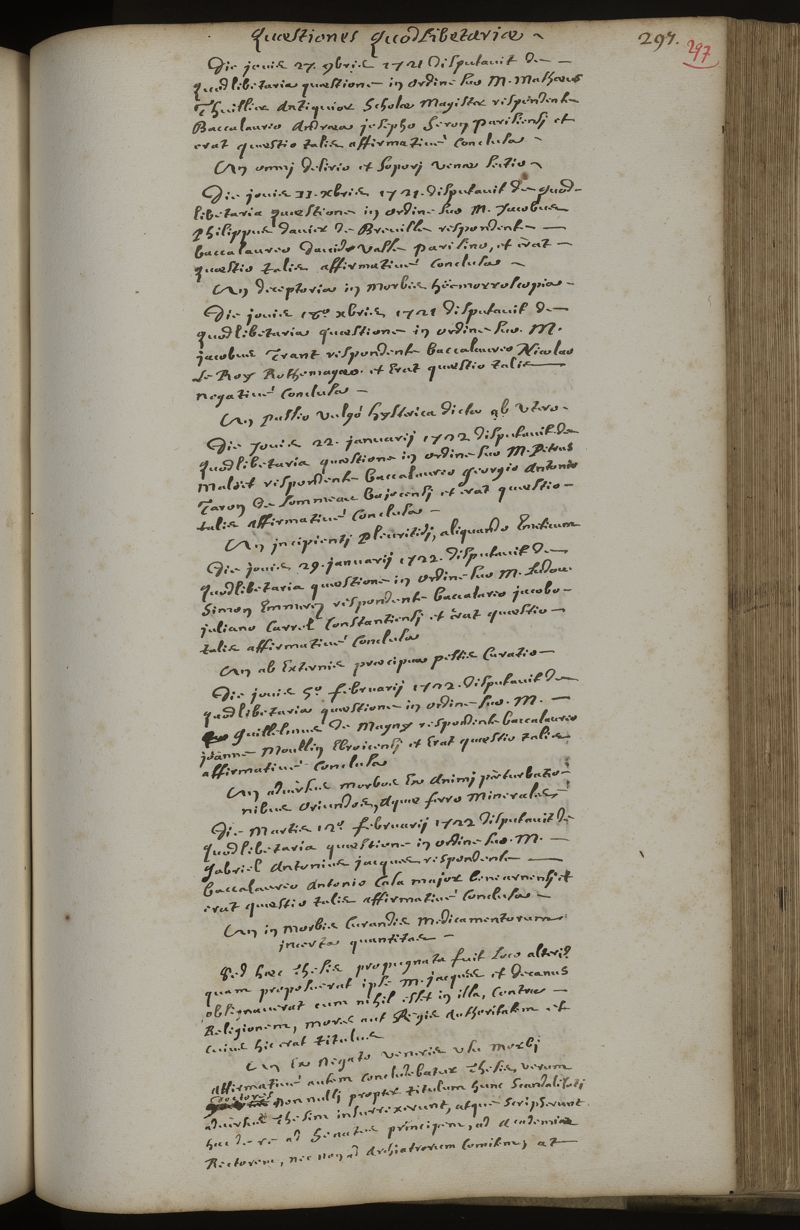 Quæstiones Quodlibetariæ
297.
297
Die jovis 27. 9bris 1721 disputavit de
quodlibetaria quæstione in ordine suo M. Mathæus
Thuillier Antiquior Scholæ Magister respondente
Baccalaureo Andrea josepho Seron parisiensi et
erat quæstio talis affirmativè conclusa
An omni delirio et sopori venæ sectio
Die jovis 11. xbris 1721. disputavit de quod-
libetaria quæstione in ordine suo M. Jacobus
philippus davier de Breville respondente
baccalaureo davide Vasse parisino, et erat
quæstio talis affirmativè conclusa
An in morbis
Die jovis 18º xbris 1721 disputavit de
quodlibetaria quæstione in ordine suo. M.
jacobus Trant respondente baccalaureo Nicolao
Le Roy Rothomagæo. et erat quæstio talis
negativè conclusa
An passio vulgò hysterica dicta ab Utero
Die Jovis 22. januarij 1722 disputavit de
quodlibetaria quæstione in ordine suo M. Petrus
Maloët respondente baccalaureo georgio Antonio
Taron de Sommeau bajocensi et erat quæstio
talis affirmativè conclusa
An jncipienti pleuritidi, aliquando Emeticum
Die jovis 29. januarij 1722. disputavit de
quodlibetaria quæstione in ordine suo M. Ludov.
Simon Emmerez respondente baccalareo jacobo
juliano Carrel Constantiensi et erat quæstio
talis affirmativè conclusa
An ab Externis præcipua pestis Curatio
Die jovis 5º februarij 1722. disputavit de
quodlibetaria quæstione in ordine suo. M.
Guillelmus de Magny respondente baccalaureo
joanne Moullin Ebroicensi et Erat quæstio talis
affirmativè conclusa
An adversus morbos Ex Animi perturbatio-
nibus oriundos, Aquæ ferro Minerales
Die Martis 12º februarij 1722 disputavit de
quodlibetaria quæstione in ordine suo. M.
gabriel Antonius jacques respondente
baccalaureo Antonio Casamajor benearnensi et
erat quæstio talis affirmativè conclusa
An in Morbis Curandis Medicamentorum
jncerta quantitas
Sed hæc thesis propugnata fuit loco alterius
quam proposuerat ipse M. jacques et decanus
obsignaverat cum nihil esset in illa, contra
Religionem, mores aut Regis Authoritatem et
cuius hic erat titulus
An Ex Negato veneris usu Morbi
affirmativè autem concludebatur thesis, verum
doctores nonnulli propter titulum hunc scandalisati
adversus thesim insurrexerunt, atque scripserunt
hac de re ad Senatus principem, ad Academiæ
Rectorem, nec non ad Archiatrorum Comitem, at